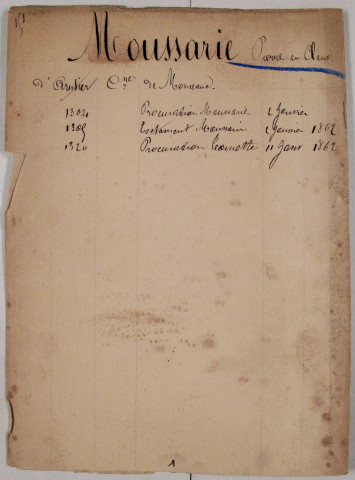 151
Moussarie Pierre au Claux
d'Arutier Cne de Monceaux.
1304 Procuration Moussarie 2 Janvier
1305 Testament Moussarie 2 Janvier 1862
1320 Procuration Cornette 11 Janv 1862
1